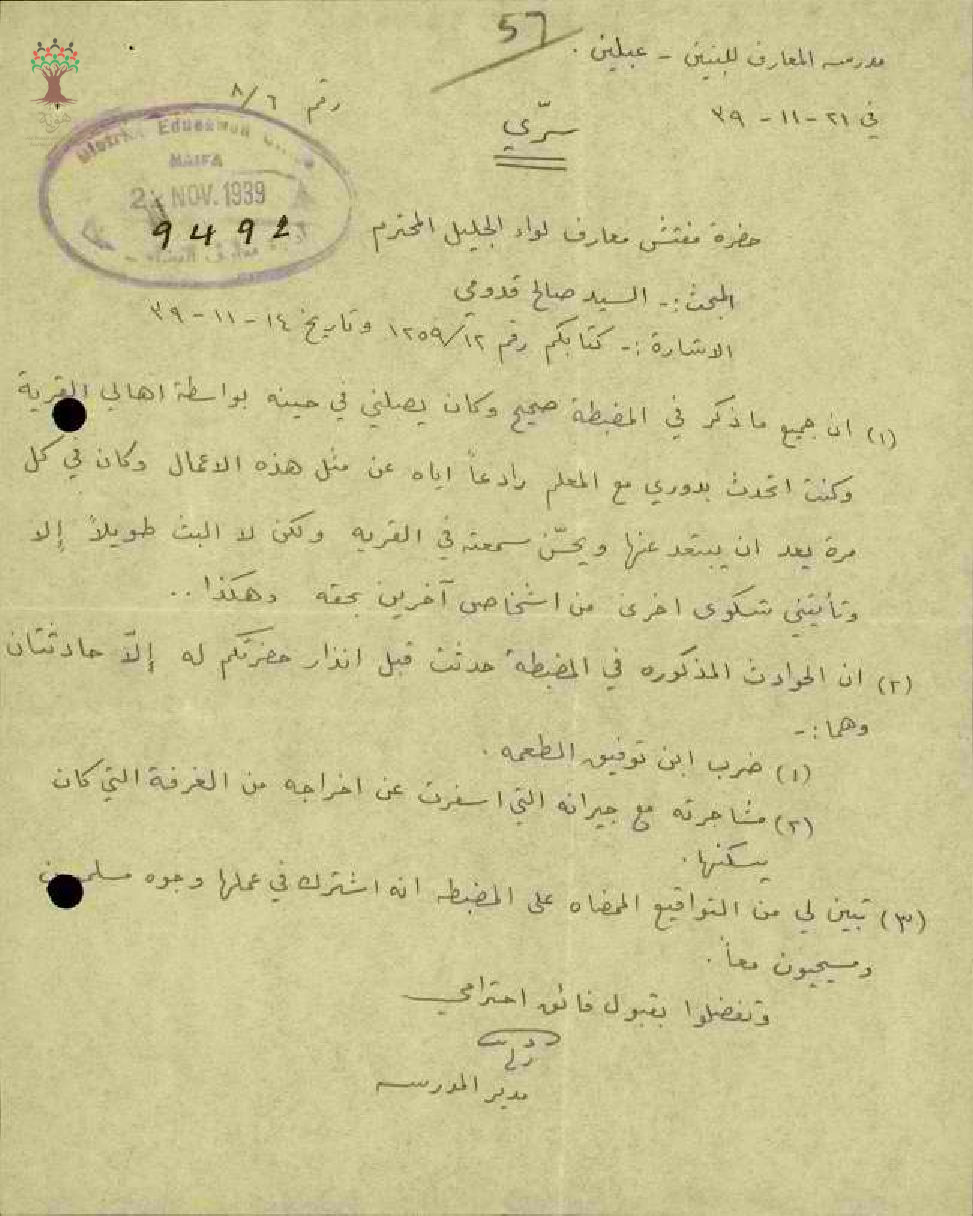 57
مدرسه المعارف للبنين - عبلين .
رقم ٨/٦
في ٢١ - ١١ - ٣٩
سرّي
District Education
HAIFA
NOV. 1939
9492
حضرة مفتش معارف لواء الجليل المحترم
المبحث :- السيد صالح قدومي
الاشارة :- كتابكم رقم ١٢٥٩/١٢ وتاريخ ١٤ - ١١ - ٣٩
(١) ان جميع ما ذكر في المضبطة صحيح وكان يصلني في حينه بواسطة اهالي القرية
وكنت اتحدث بدوري مع المعلم رادعاً اياه عن مثل هذه الاعمال وكان في كل
مرة يعد ان يبتعد عنها ويحسّن سمعته في القريه ولكن لا البث طويلاً إلا
وتأتيني شكوى اخرى من اشخاص آخرين بحقه وهكذا ..
(٢) ان الحوادث المذكوره في المضبطة حدثت قبل انذار حضرتكم له إلاّ حادثتان
وهما :-
(١) ضرب ابن توفيق الطعمه .
(٢) مشاجرته مع جيرانه التي اسفرت عن اخراجه من الغرفة التي كان
يسكنها .
(٣) تبين لي من التواقيع الممضاه على المضبطه انه اشترك في عملها وجوه مسلمون
ومسيحيون معاً .
وتفضلوا بقبول فائق احترامي
مدير المدرسه